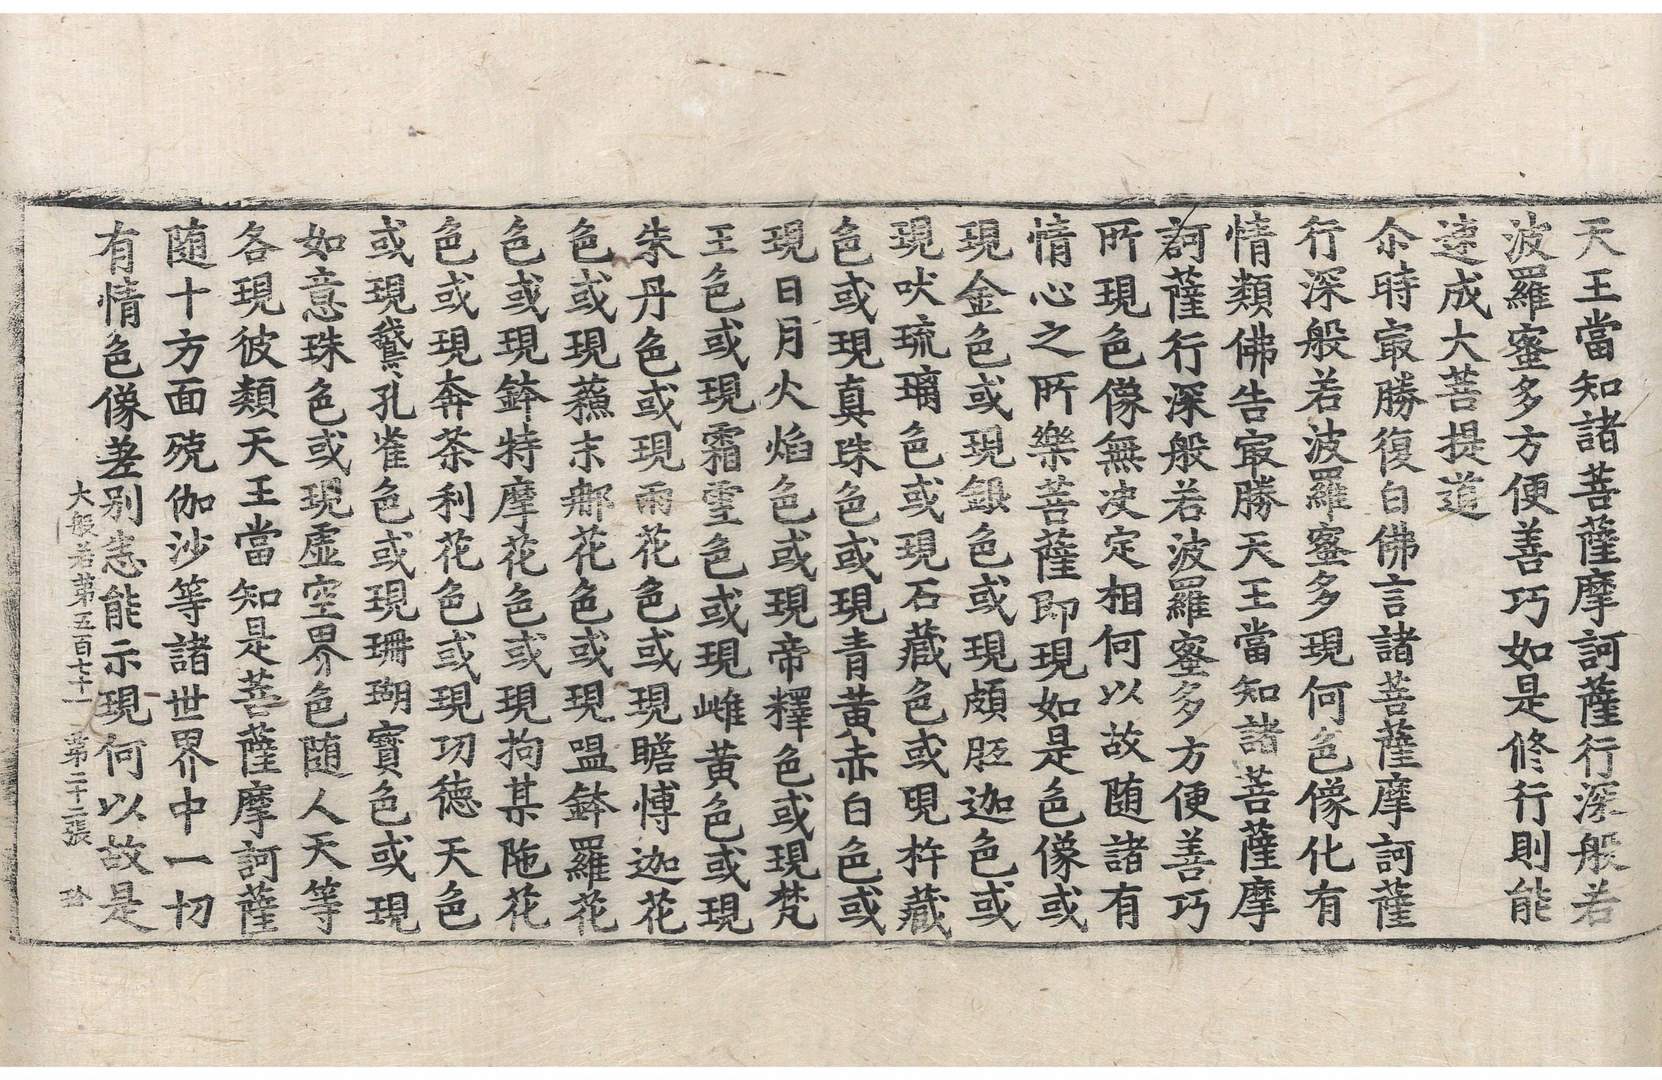 天王當知諸菩薩摩訶薩行深般若
波羅蜜多方便善巧如是修行則能
速成大菩提道
尒時㝡勝復白佛言諸菩薩摩訶薩
行深般若波羅蜜多現何色像化有
情類佛告㝡勝天王當知諸菩薩摩
訶薩行深般若波羅蜜多方便善巧
所現色像無决定相何以故随諸有
情心之所樂菩薩即現如是色像或
現金色或現銀色或現頗胝迦色或
現吠琉璃色或現石藏色或現杵藏
色或現真珠色或現青黃赤白色或
現日月火焰色或現帝釋色或現梵
王色或現霜雪色或現雌黃色或現
朱丹色或現雨花色或現瞻博迦花
色或現蘓末那花色或現嗢鉢羅花
色或現鉢特摩花色或現拘某陁花
色或現奔荼利花色或現功德天色
或現鵝孔雀色或現珊瑚寶色或現
如意珠色或現虛空界色随人天等
各現彼類天王當知是菩薩摩訶薩
随十方面殑伽沙等諸世界中一切
有情色像差別悉能示現何以故是
大般若第五百七十一 第二十二張 珍